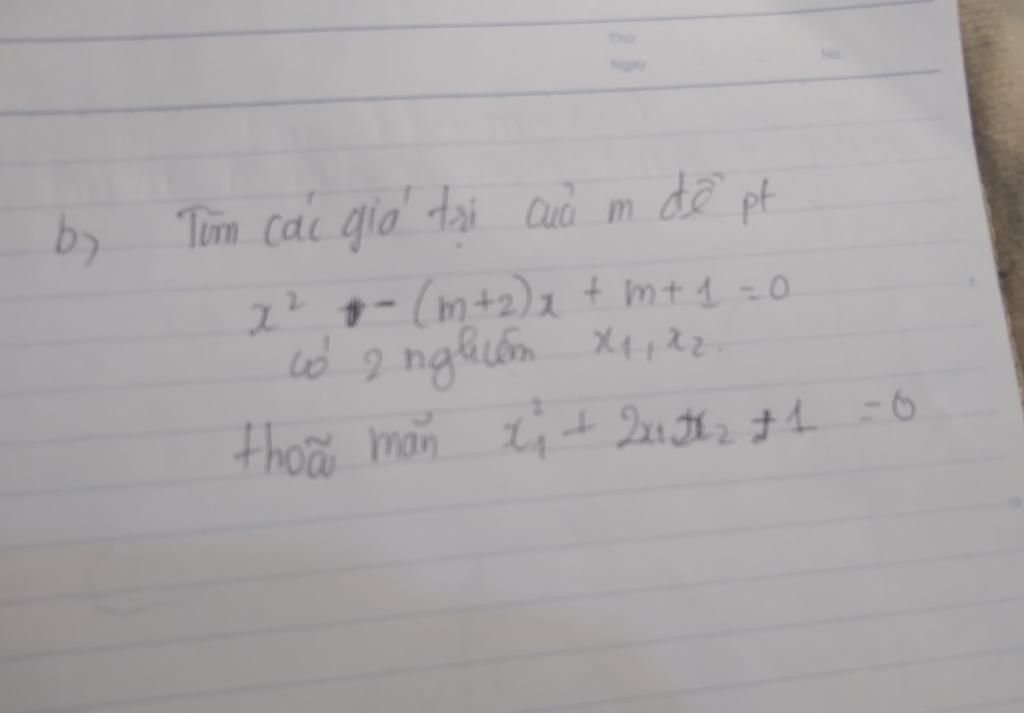 Thứ
Ngày
No.
b) Tìm các giá trị của m để pt
x² - (m+2)x + m+1 =0
có 2 nghiệm x₁, x₂.
thoã mãn x₁² + 2x₁ + x₂ + 1 =0